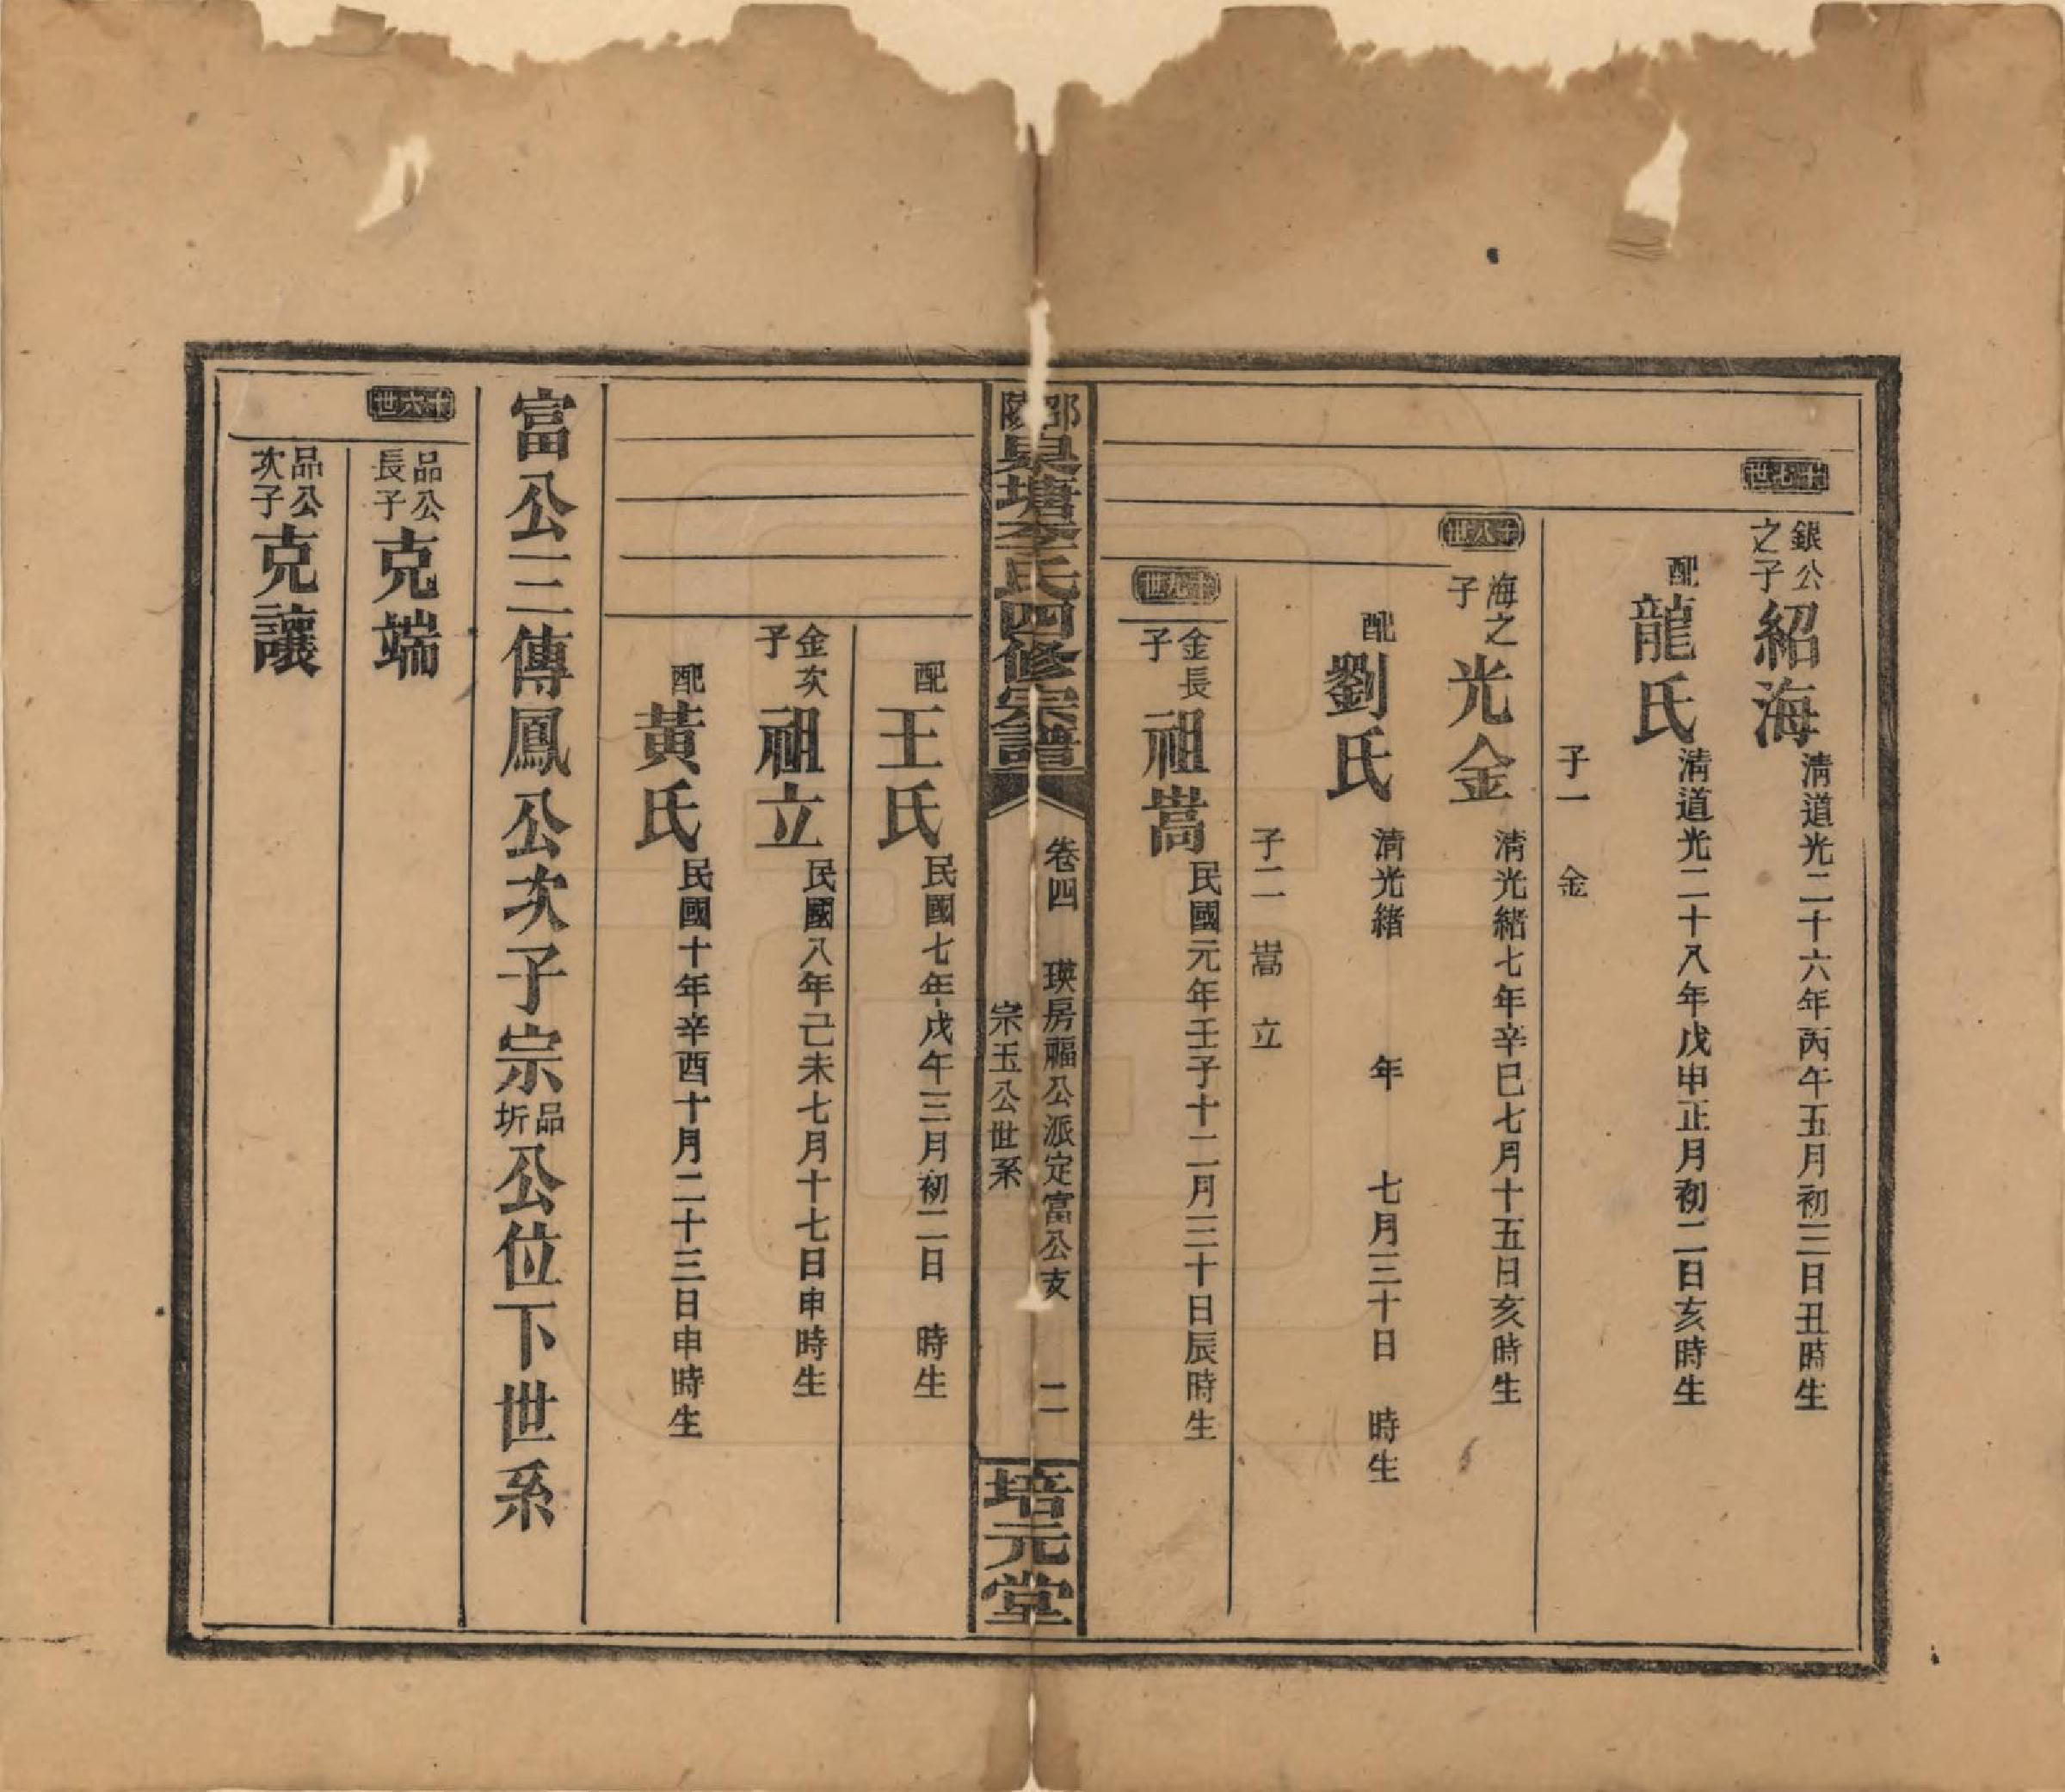 十七世
銀公之子 紹海 清道光二十六年丙午五月初三日丑時生
配 龍氏 清道光二十八年戊申正月初二日亥時生
子一 金
十八世
海之子 光金 清光緒七年辛巳七月十五日亥時生
配 劉氏 清光緒 年 七月三十日 時生
子二 嵩 立
十九世
金長子 祖嵩 民國元年壬子十二月三十日辰時生
邵陵梟塘李氏四修宗譜
卷四 瑛房福公派定富公支 二
宗玉公世系
培元堂
配 王氏 民國七年戊午三月初二日 時生
金次子 祖立 民國八年己未七月十七日申時生
配 黃氏 民國十年辛酉十月二十三日申時生
富公三傳鳳公次子宗品圻公位下世系
十六世
品公長子 克端
品公次子 克讓